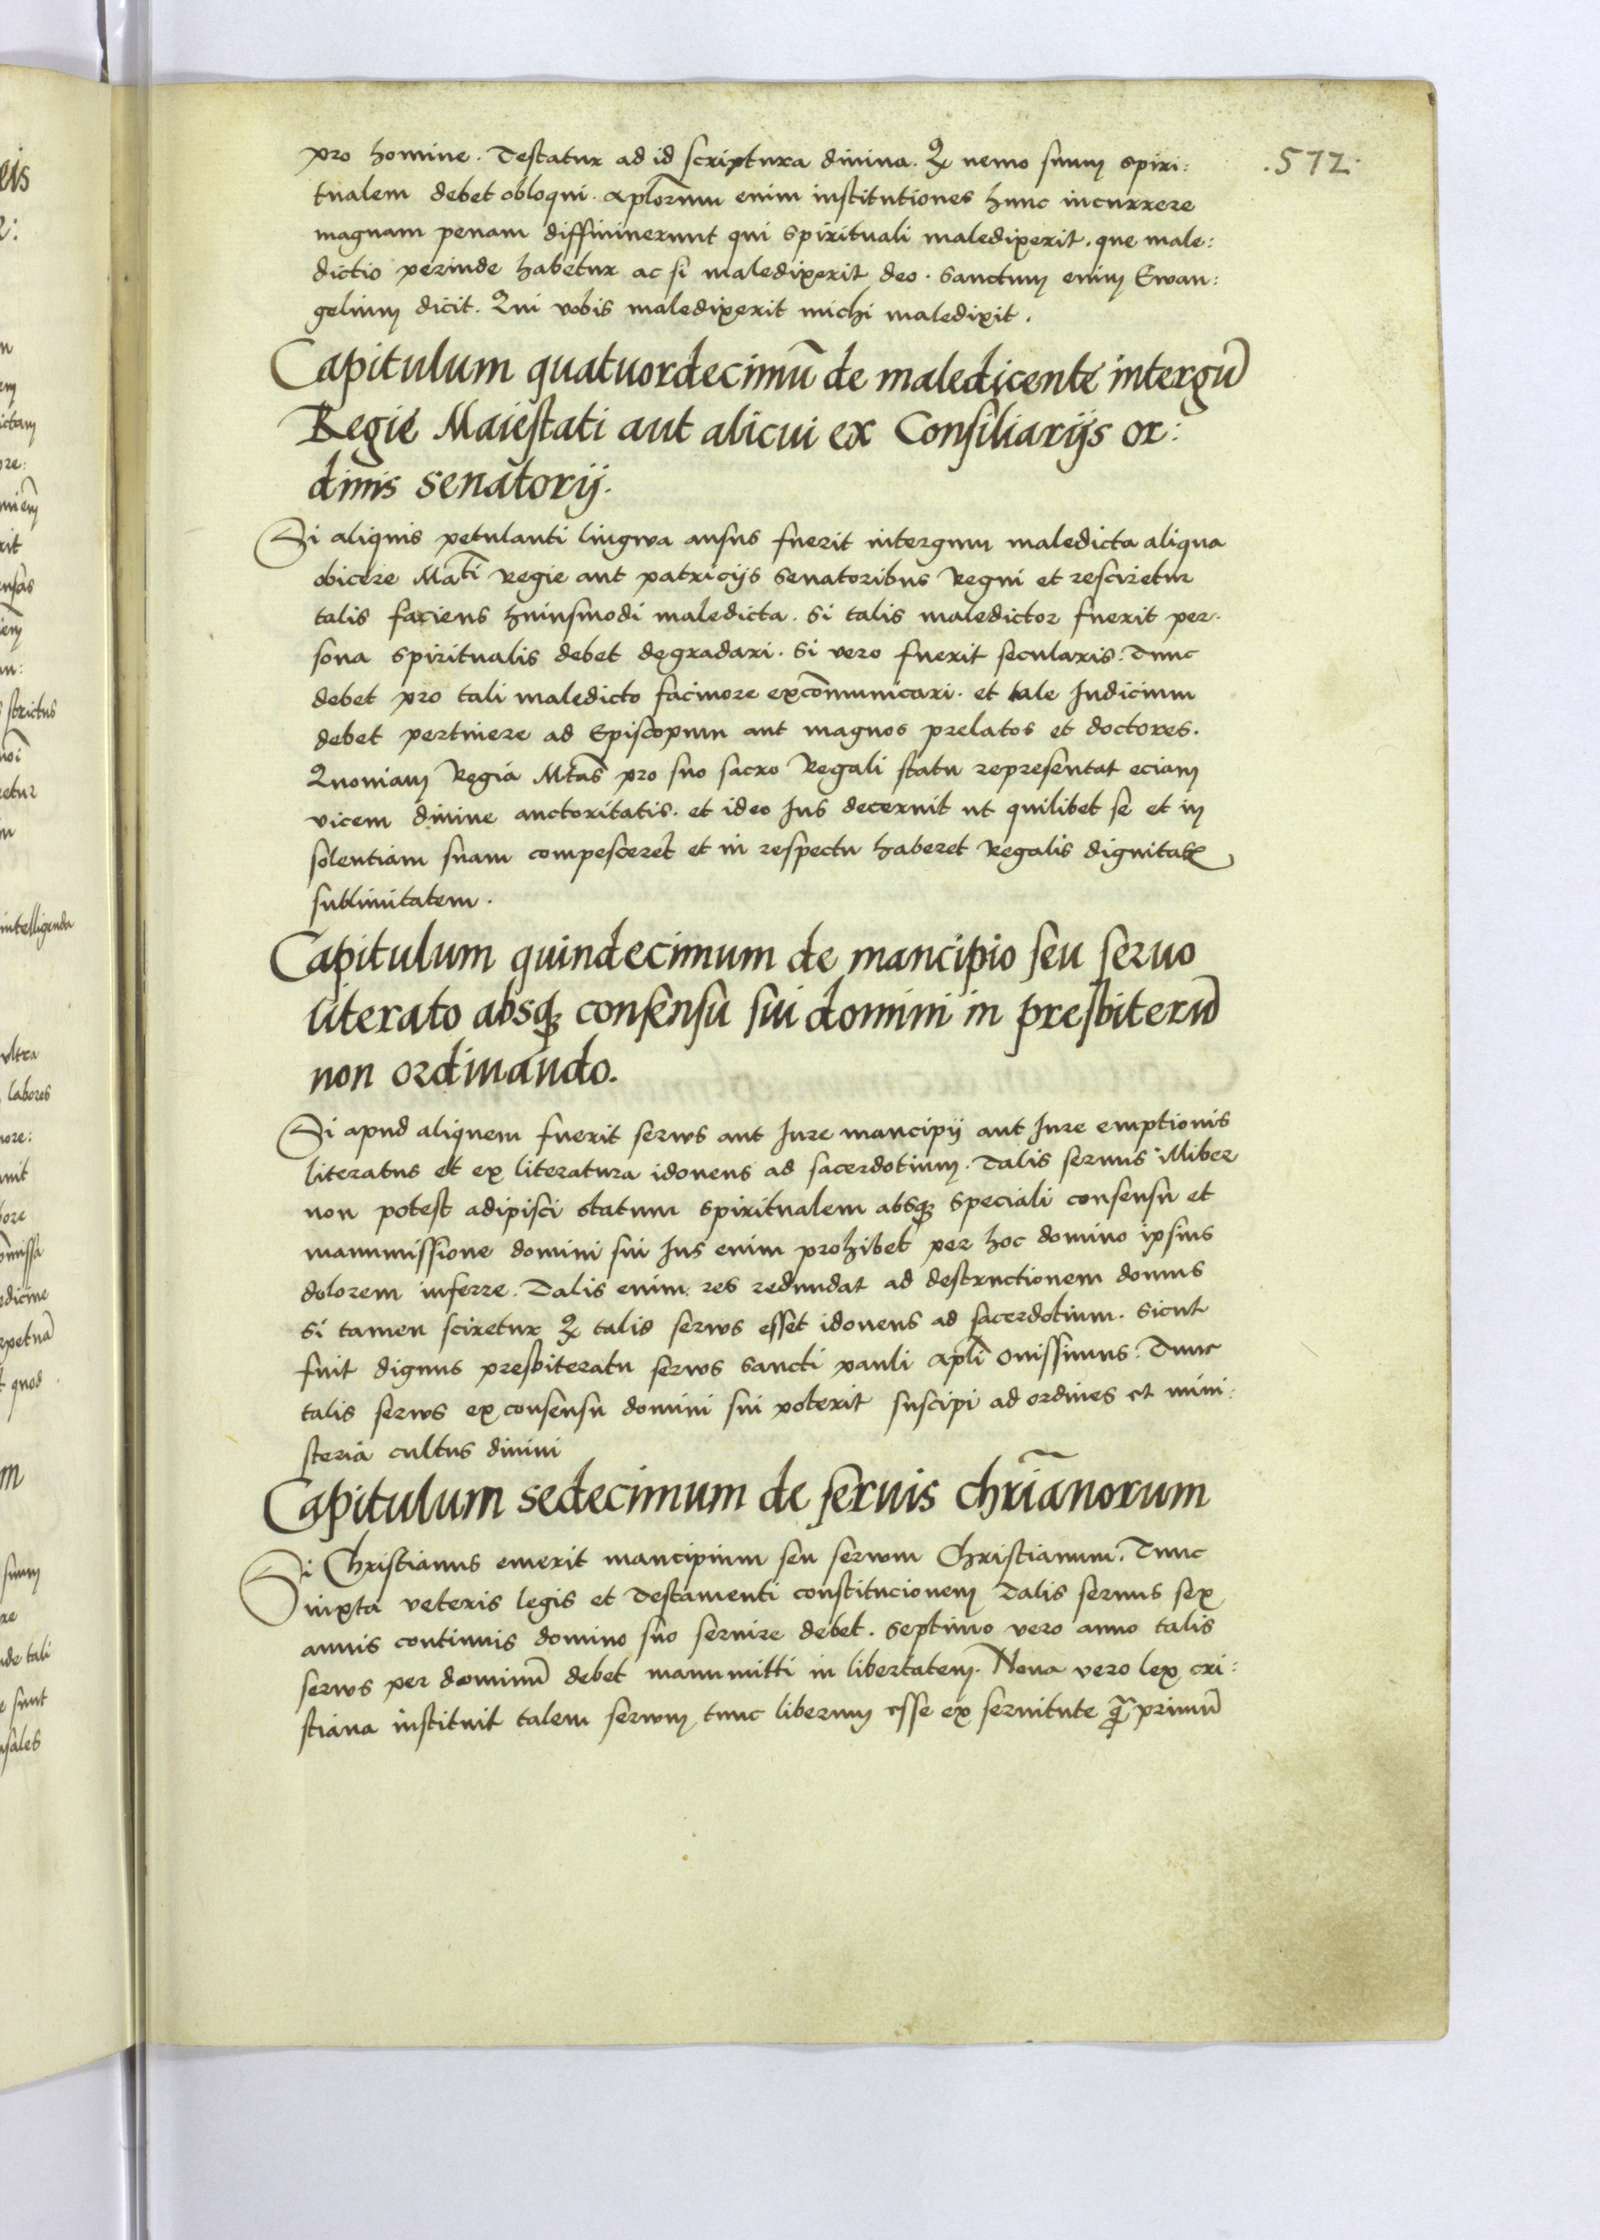 .572.
pro homine. Testatur ad id scriptura divina. Qꝫ nemo suum spiri:
tualem debet obloqui. Aplo̅rum enim institutiones hunc incurrere
magnam penam diffiniuerunt qui spirituali maledixerit. que male:
dictio perinde habetur ac si maledixerit deo. Sanctum enim Ewan:
gelium dicit. Qui vobis maledixerit michi maledixit.
Capitulum quatuordecimu̅ de maledicente intergu̅
Regie Maiestati aut alicui ex Consiliarijs or:
dinis senatorij.
Si aliquis petulanti lingwa ausus fuerit intergum maledicta aliqua
obicere Mati̅ Regie aut patricijs Senatoribus Regni et resciretur
talis faciens huiusmodi maledicta. Si talis maledictor fuerit per.
sona spiritualis debet degradari. Si vero fuerit secularis. Tunc
debet pro tali maledicto facinore exco̅municari. et tale Iudicium
debet pertinere ad Episcopum aut magnos prelatos et doctores.
Quoniam Regia Mta̅s pro suo sacro Regali statu representat eciam
vicem diuine auctoritatis. et ideo Ius decernit ut quilibet se et in
solentiam suam compesceret et in respectu haberet Regalis dignitatꝭ
sublimitatem.
Capitulum quindecimum de mancipio seu seruo
literato absqꝫ consensu sui domini in presbiteru̅
non ordinando.
Si apud aliquem fuerit serws aut Iure mancipij aut Iure emptionis
literatus et ex literatura idoneus ad sacerdotium. Talis seruus illiber
non potest adipisci statum spiritualem absqꝫ speciali consensu et
manumissione domini sui Ius enim prohibet per hoc domino ipsius
dolorem inferre. Talis enim res redundat ad destructionem domus
Si tamen sciretur qꝫ talis serws esset idoneus ad sacerdotium. Sicut
fuit dignus presbiteratu serws sancti pauli apli̅ Onissimus. Tunc
talis serws ex consensu domini sui poterit suscipi ad ordines et mini:
steria cultus diuini
Capitulum sedecimum de seruis chri̅anorum
Si Christianus emerit mancipium seu serwm Christianum. Tunc
iuxta veteris legis et Testamenti constitucionem Talis seruus sex
annis continuis domino suo seruire debet. Septimo vero anno talis
serws per dominu̅ debet manumitti in libertatem. Noua vero lex cri:
stiana instituit talem serwm tunc liberum esse ex seruitute qua̅primu̅